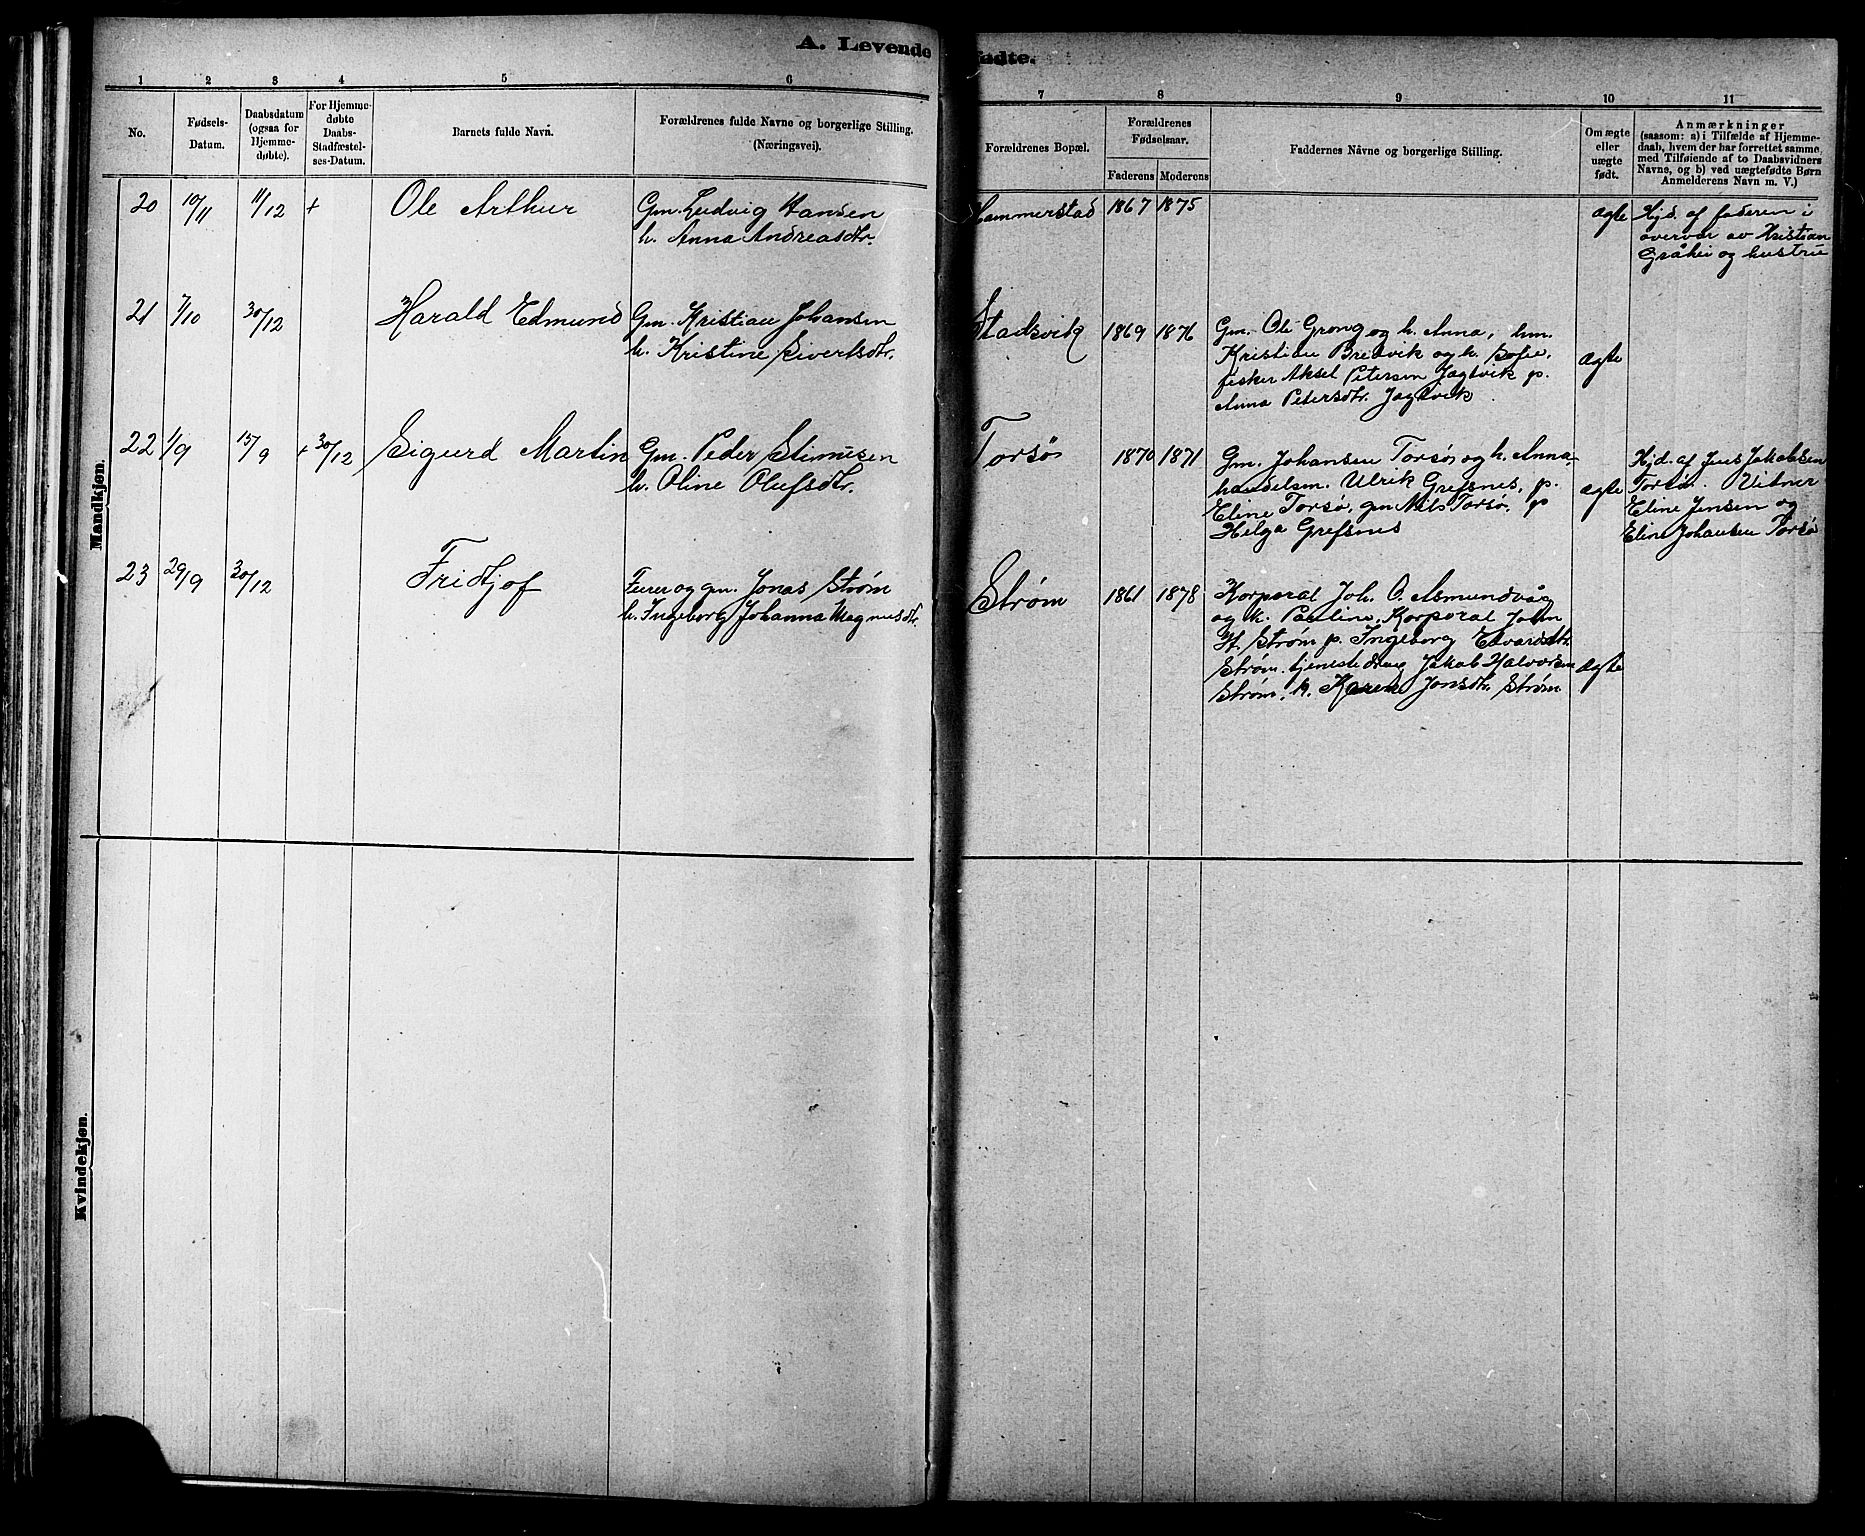 A. Levende fødte.
1 2 3 4 5 6 7 8 9 10 11
No.
Fødsels-
Datum.
Daabsdatum
(ogsaa for
Hjemme-
døbte).
For Hjemme-
døbte
Daabs-
Stadfæstel-
ses-Datum.
Barnets fulde Navn.
Forældrenes fulde Navne og borgerlige Stilling.
(Næringsvei).
Forældrenes Bopæl.
Forældrenes
Fødselsaar.
Faderens Moderens
Faddernes Navne og borgerlige Stilling.
Om ægte
eller
uægte
født.
Anmærkninger
(saasom: a) i Tilfælde af Hjemme-
daab, hvem der har forrettet samme
med Tilføiende af to Daabsvidners
Navne, og b) ved uægtefødte Børn
Anmelderens Navn m. V.)
Mandkjøn.
20 10/11 11/12 + Ole Arthur
Gm. Ludvig Hansen
h. Anna Andreasdtr.
Hammerstad 1867 1875
ægte
Hjd. af faderen i
overvær av Kristian
Gråhei og hustru
21 7/10 30/12 Harald Edmund
Gm. Kristian Johansen
h. Kristine Sivertsdtr.
Stadsvik 1869 1876
Gm. Ole Grong og h. Anna,
Kristian Bredvik og h. Sofie,
fisker Aksel Petersen Jagtvik p.
Anna Petersdtr. Jagtvik
ægte
22 1/9 15/9 + 30/12 Sigurd Martin
Gm. Peder
h. Oline Olufsdtr.
Torsø 1870 1871
Gm. Johansen Torsø og h. Anna,
handelsm. Ulrik Grefsnes, p.
Eline Torsø, gm Nils Torsø, p
Helga Grefsnes
ægte
Hjd. af Jens Jakobsen
Torsø. Vitner
Eline Jensen og
Eline Johansen Torsø
23 29/9 30/12 Fridtjof
og gm. Jonas Strøm
h. Ingeborg Johanna Magnusdtr.
Strøm 1861 1878
Korporal Joh. O. Asmundvåg
og h. Pauline, Korporal John
H. Strøm p. Ingeborg Edvardsdtr.
Strøm. tjenestedreng Jakob Halvorsen
Strøm, h. Karen Jonsdtr. Strøm
ægte
Kvindekjøn.